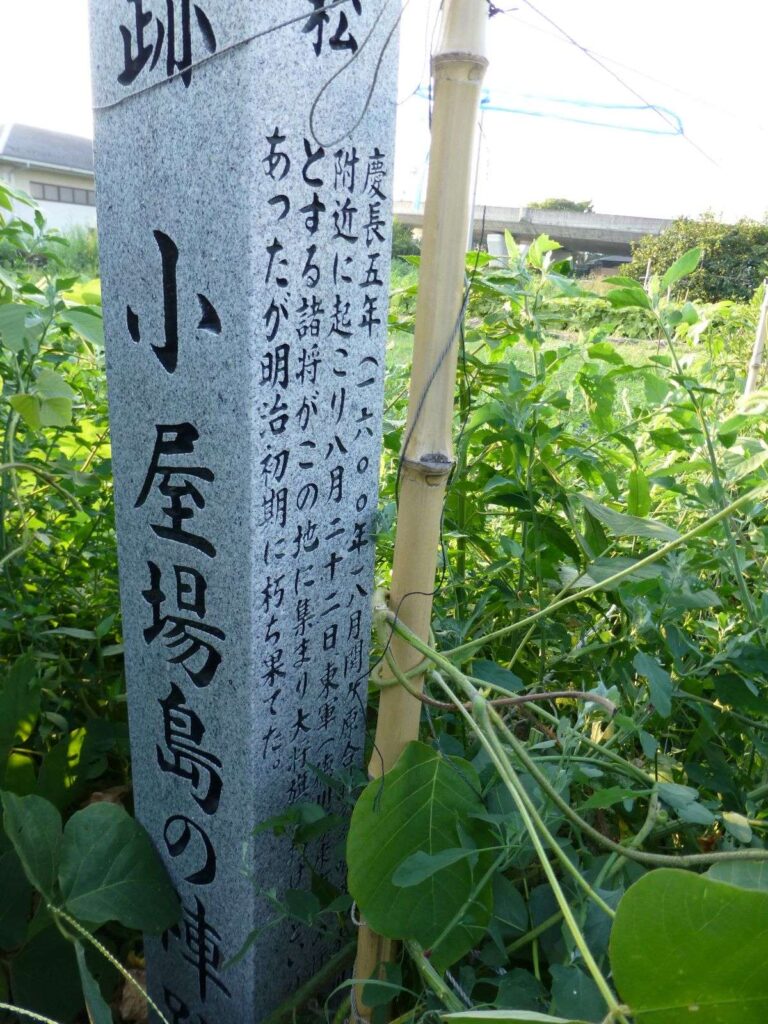 跡
小屋場島の陣
松
慶長五年(一六〇〇年)八月関ヶ原合
附近に起こり八月二十二日東軍(徳川
とする諸将がこの地に集まり大将旗
あったが明治初期に朽ち果てた。